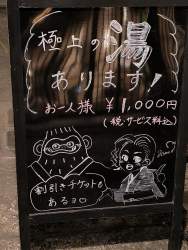 極上の湯
あります！
お一人様 ￥1,000円
(税・サービス料込)
割引きチケットも
あるョ♡